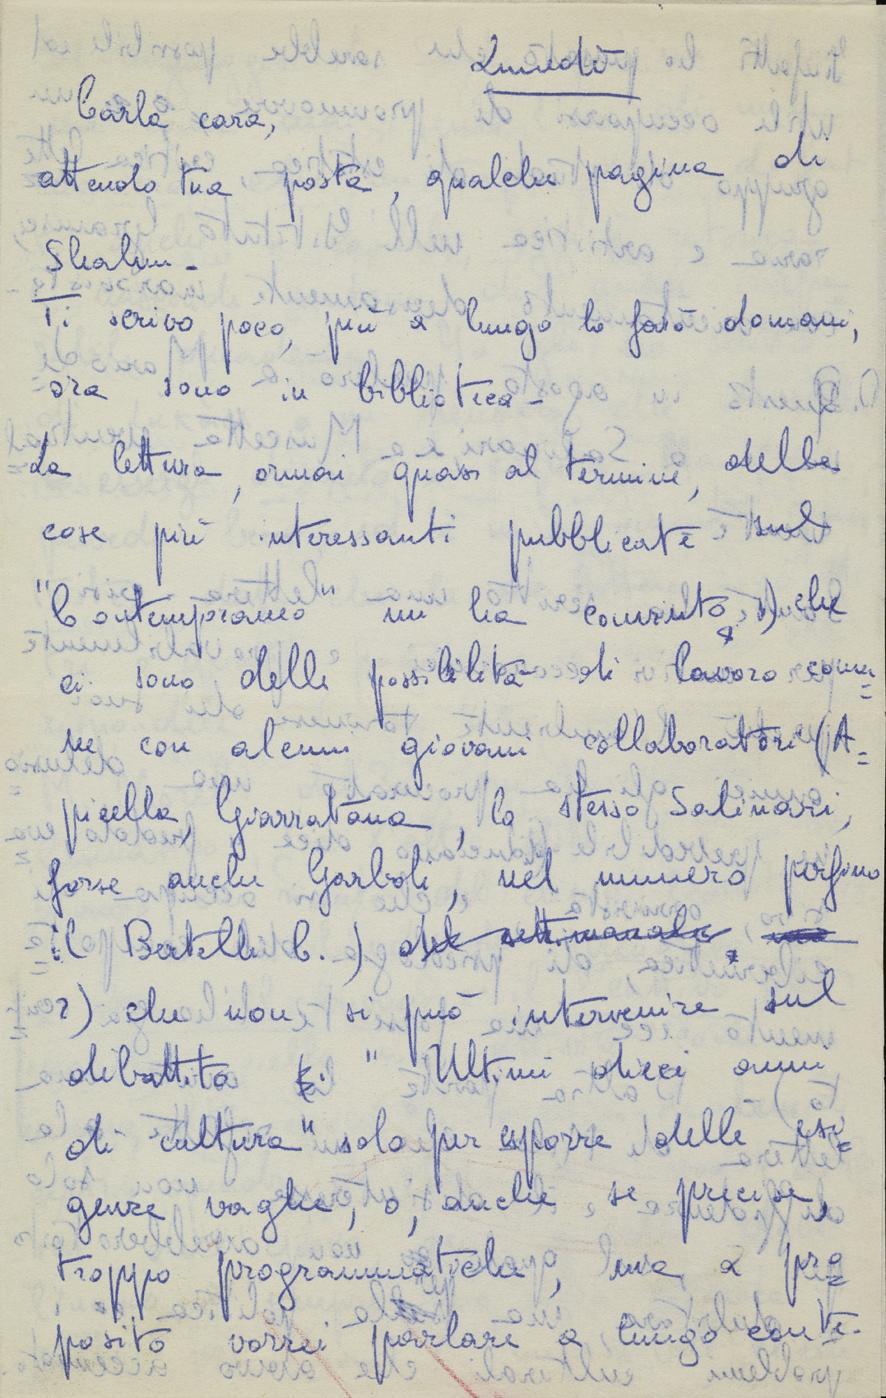 Lunedì
Carla cara,
attendo tua posta, qualche pagina di
Shalom -
Ti scrivo poco, più a lungo lo farò domani,
ora sono in biblioteca -
La lettura, ormai quasi al termine, delle
cose più interessanti pubblicate sul
"Contemporaneo" mi ha convinto 1) che
ci sono delle possibilità di lavoro comu=
ne con alcuni giovani collaboratori (A=
picella, Giarratana, lo stesso Salinari,
forse anche Garboli, nel numero perfino
il Bertelli C.) del settimanale
2) che non si può intervenire sul
dibattito "Ultimi dieci anni
di cultura" solo per esporre delle esi=
genze vaghe, o, anche se precise,
troppo programmatiche, ma a pro=
posito vorrei parlare a lungo con te.